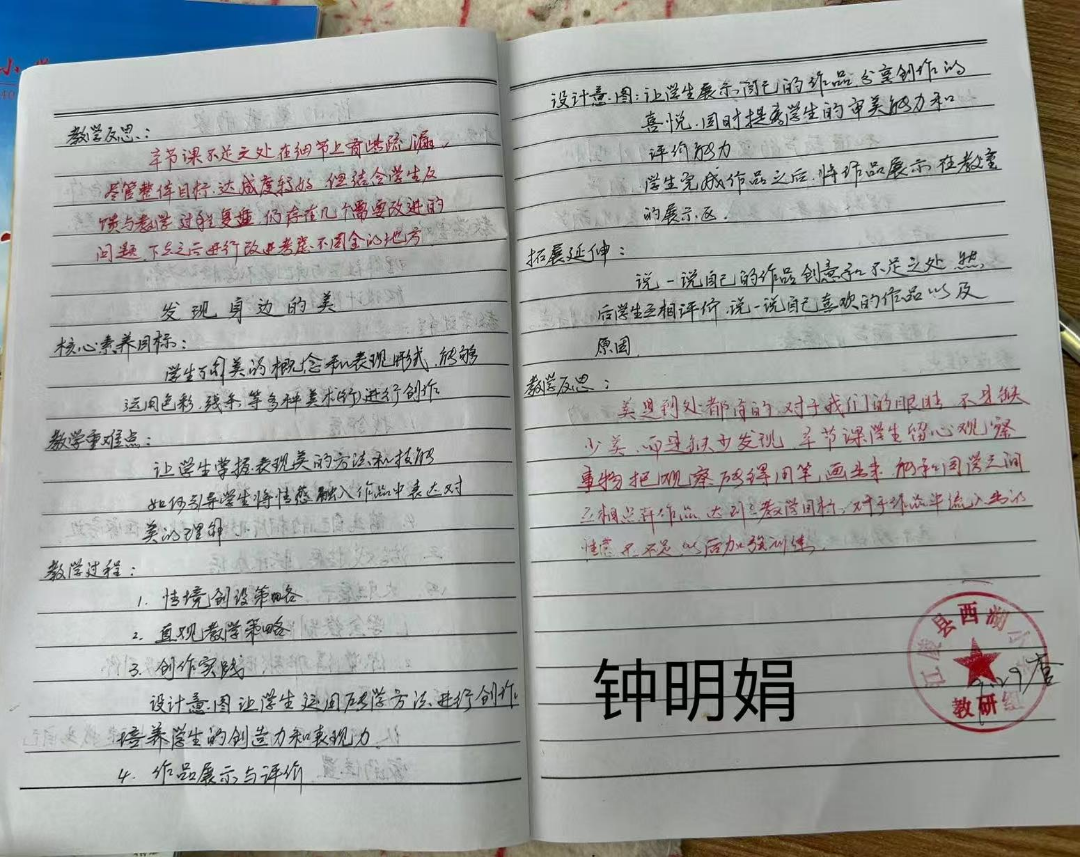 教学反思：
本节课不足之处在细节上有些疏漏，
尽管整体目标达成度较好，但结合学生反
馈与教学过程复盘，仍存在几个需要改进的
问题，下点之后进行改进考虑不周全的地方
发现身边的美
核心素养目标：
学生了解美的概念和表现形式，能够
运用色彩，线条，等多种美术语言进行创作
教学重难点：
让学生掌握表现美的方法和技能
如何引导学生将情感融入作品中表达对
美的理解
教学过程：
1. 情境创设策略
2. 直观教学策略
3. 创作实践
设计意图让学生运用所学方法进行创作，
培养学生的创造力和表现力
4. 作品展示与评价
设计意图：让学生展示自己的作品，分享创作的
喜悦，同时提高学生的审美能力和
评价能力
学生完成作品之后，将作品展示在教室
的展示区．
拓展延伸：
说一说自己的作品创意和不足之处，然
后学生互相评价，说一说自己喜欢的作品以及
原因．
教学反思：
美是到处都有的，对于我们的眼睛，不是缺
少美，而是缺少发现，本节课学生留心观察
事物把观察所得用笔画出来，同学之间
互相点评作品，达到了教学目标，对于作品中流入出的
情意还不足以后加强训练．
钟明娟
江陵县西湖小
教研组